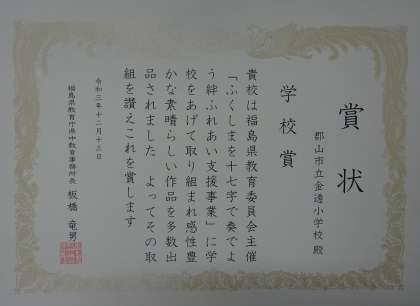 賞状
郡山市立金透小学校 殿
学校賞
貴校は福島県教育委員会主催
「ふくしまを十七字で奏でよ
う絆ふれあい支援事業」に学
校をあげて取り組まれ感性豊
かな素晴らしい作品を多数出
品されました よってその取
組を讃えこれを賞します
令和三年十二月十三日
福島県教育庁県中教育事務所長 板橋 竜男